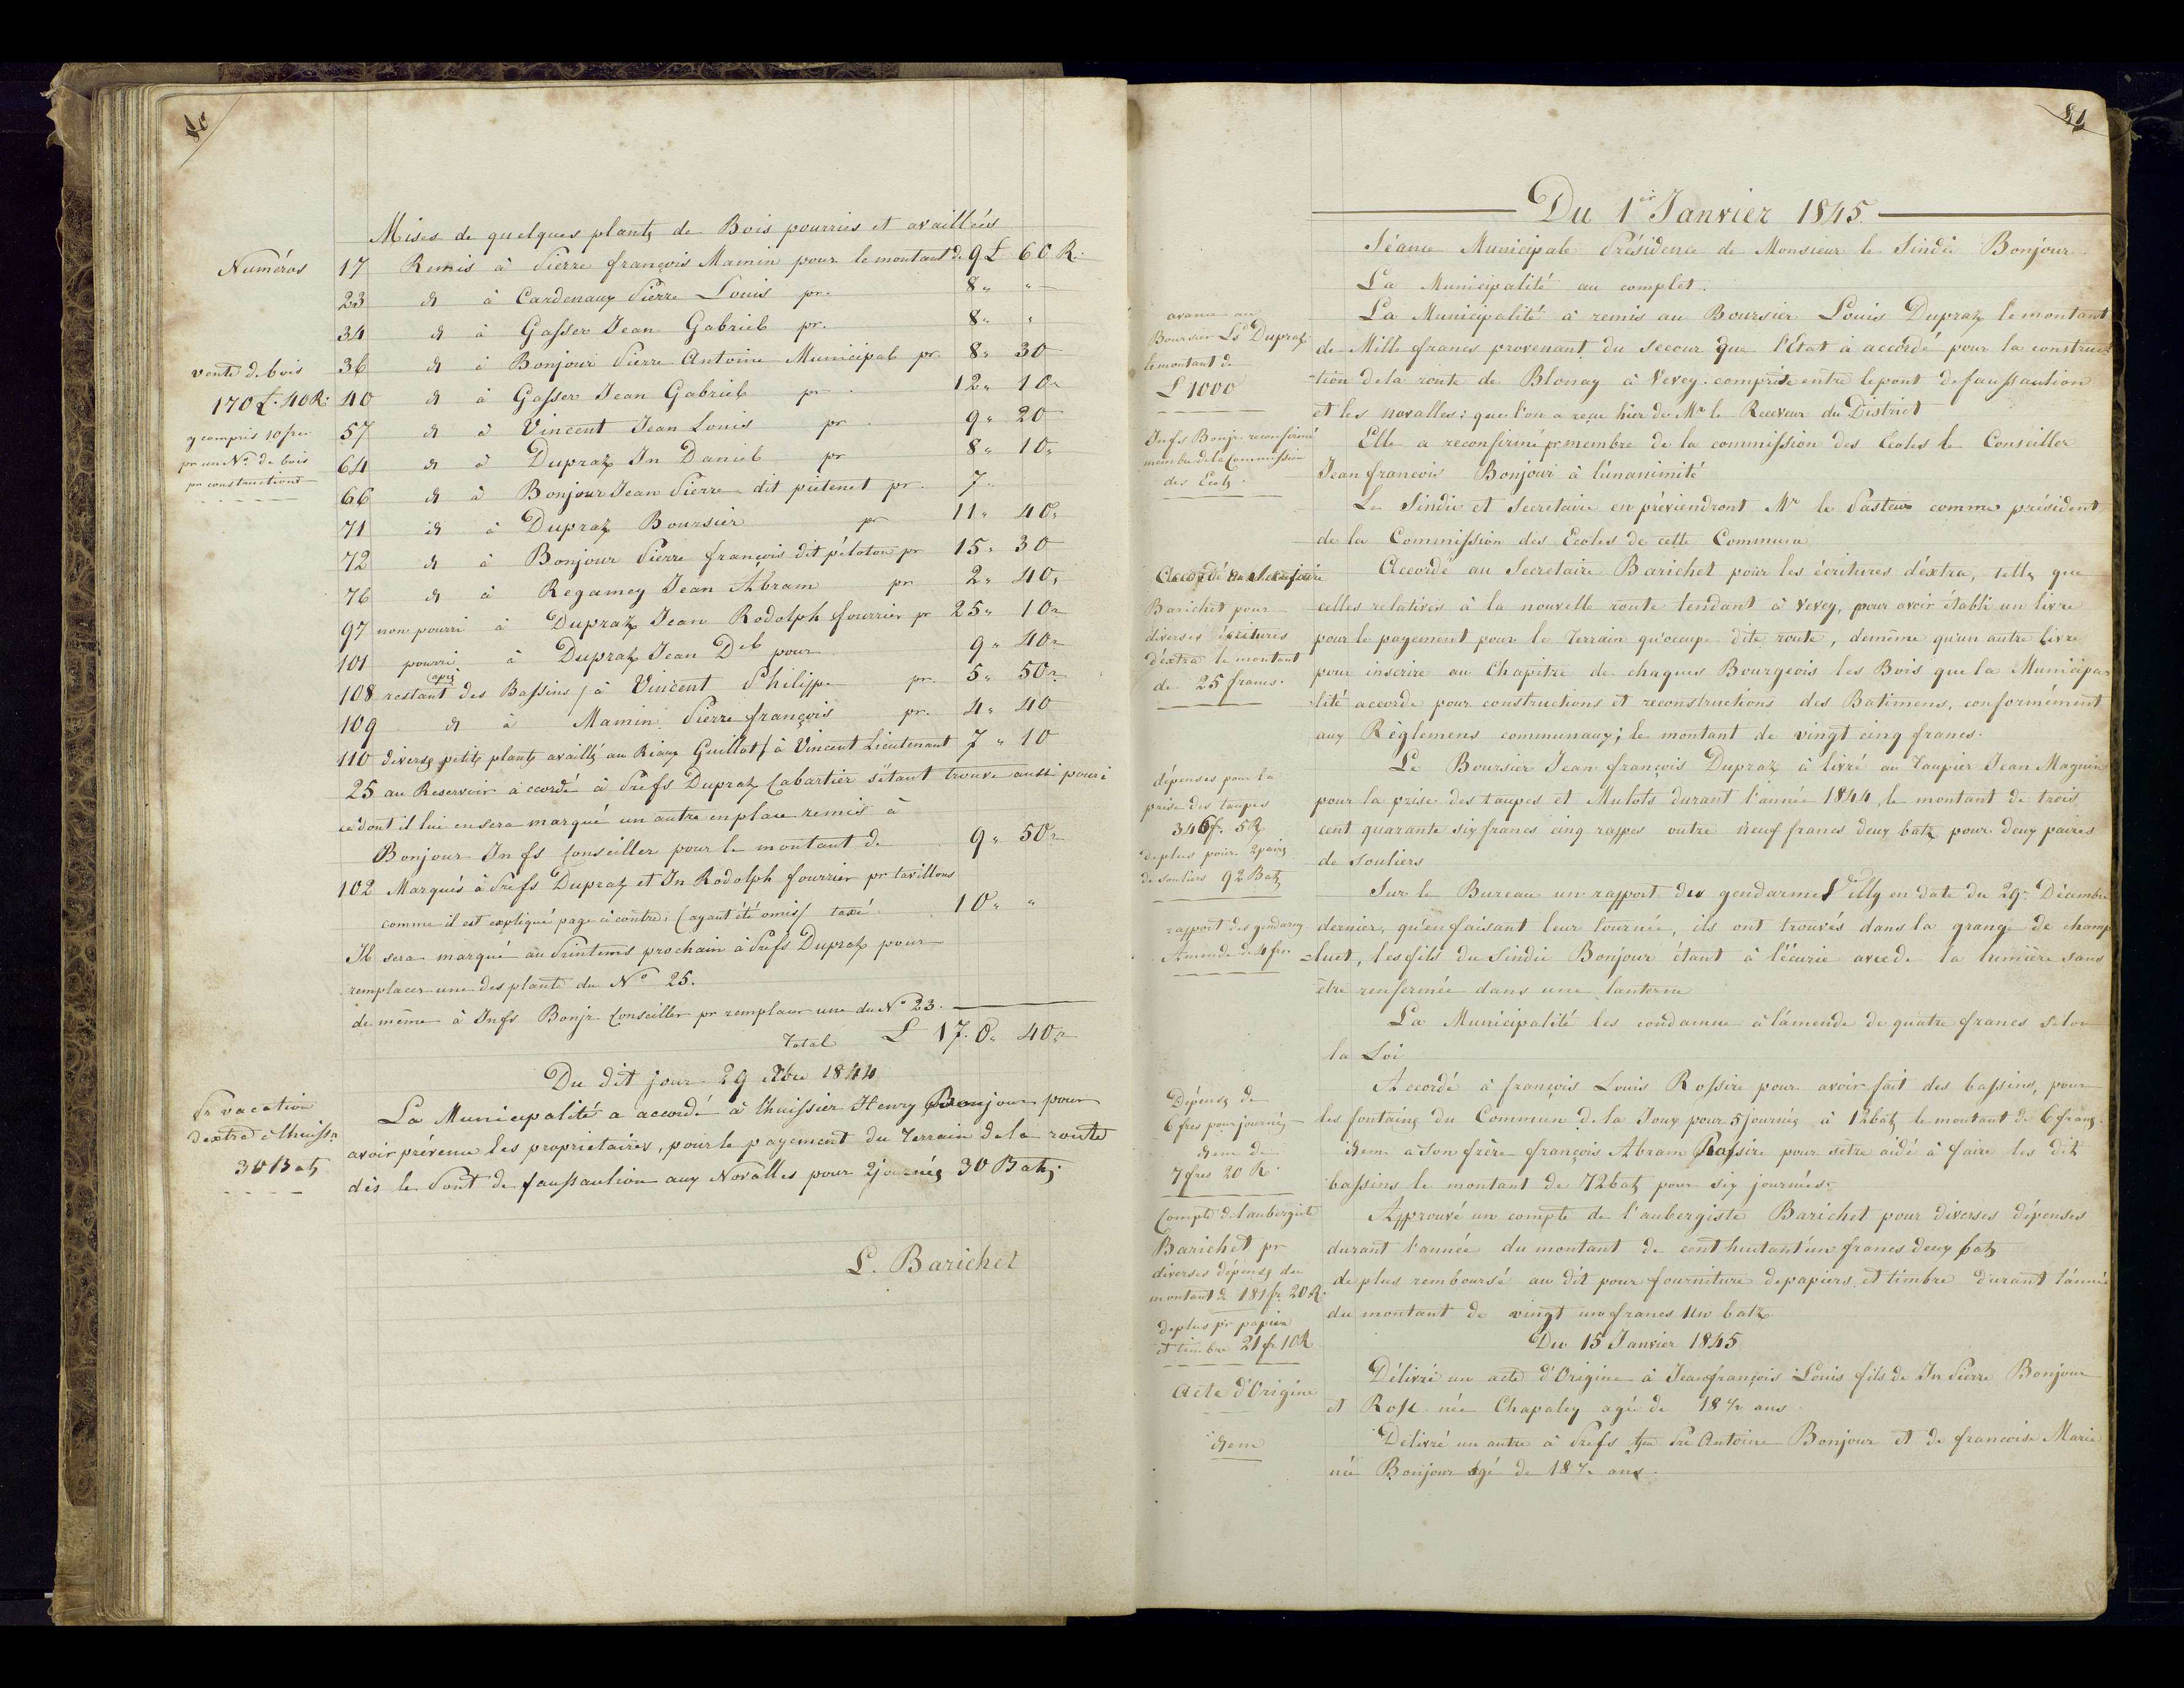 80
Mises de quelques plantz de Bois pourries et availlées
Numéros 17 Remis à Pierre françois Mamin pour le montant de 9 £ 60 R.
23 id à Cardenaux Pierre Louis pr. 8 " " 
34 id à Gasser Jean Gabriel pr. 8 " "
vente de bois 36 id à Bonjour Pierre Antoine Municipal pr 8 " 30
170 £. 40 R: 40 id à Gasser Jean Gabriel pr 12 " 10 "
y compris 10 frcs 57 id à Vincent Jean Louis pr 9 " 20
pr un No. de bois 64 id à Dupraz Jn Daniel pr 8 " 10 "
pr constructions 66 id à Bonjour Jean Pierre dit pietenet pr 7 "
71 id à Dupraz Boursier pr 11 " 40 "
72 id à Bonjour Pierre françois dit péloton pr 15 " 30
76 id à Regamey Jean Abram pr 2 " 40 "
97 non pourri à Dupraz Jean Rodolph fourrier pr 25 " 10 "
101 pourri à Dupraz Jean Del pour 9 " 40 "
108 restant des Bassins / à Vincent Philippe pr. 5 " 50 "
109 id à Mamin Pierre françois pr. 4 " 40
110 diverses petits plantz availlé au Riaux Guillot / à Vincent Lieutenant 7 " 10
25 au Reservoir accordé à Prefs Dupraz Cabartier s'étant trouvé aussi pouri
ce dont il lui en sera marqué un autre en place remis à
Bonjour Jn fs Conseiller pour le montant de 9 " 50 "
102 Marqués à Prefs Dupraz et Jn Rodolph fourrier pr tavillons
comme il est expliqué page ci contre: (ayant été omis) taxé 10 " "
Il sera marqué au Printems prochain à Prefs Dupraz pour
remplacer une des plante du No 25.
de même à Jn fs Bonjr Conseiller pr remplacer une du No 23.
Total £ 170 " 40 "
Du dit jour 29 Xbre 1844
pr vacation La Municipalité a accordé à l'huissier Henry Bonjour pour
dextra à lhuissr avoir prévenu les proprietaires, pour le payement du Terrain de la route
30 Batz dès le Pont de faussaution aux Novalles pour 2 journées 30 Batz.
L. Barichet
81
Du 1er Janvier 1845
Séance Municipale Présidence de Monsieur le Sindic Bonjour
La Municipalité au complet.
avance au La Municipalité à remis au Boursier Louis Dupraz le montant
Boursier Ls Dupraz de Mille francs provenant du secour que l'Etat à accordé pour la construc-
le montant de -tion de la route de Blonay à Vevey. comprise entre le pont de faussaution
£ 1000 et les novalles; que l'on a reçu hier de Mr le Receveur du District
Jnfs Bonjr reconfirmé Elle a reconfirmé pr membre de la commission des Ecoles le Conseiller
membre de la Commission Jean francois Bonjour à l'unanimité
des Ecolz. Le Sindic et Secretaire en préviendront Mr le Pasteur comme président
de la Commission des Ecoles de cette Commune
Accordé au Secretaire Accordé au Secretaire Barichet pour les écritures d'extra, tellz que
Barichet pour celles relatives à la nouvelle route tendant à Vevey, pour avoir établi un livre
diverses écritures pour le payement pour le Terrain qu'occupe dite route, demême qu'un autre livre
d'extra le montant pour inscrire au Chapitre de chaques Bourgeois les Bois que la Municipa-
de 25 francs. -lité accorde pour constructions et reconstructions des Batimens, conformément
aux Règlemens communaux; le montant de vingt cinq francs.
dépenses pour la Le Boursier Jean françois Dupraz à livré au Taupier Jean Maguin
prise des taupes pour la prise des taupes et Mulots durant l'année 1844, le montant de trois
346 fr. 5 R cent quarante six francs cinq rappes outre neuf francs deux batz pour deux paires
de plus pour 2 pairz de souliers
de souliers 92 Batz Sur le Bureau un rapport des gendarmes en date du 29e Décembre
rapport des gendarmz dernier, qu'en faisant leur tournée, ils ont trouvés dans la grange de champ
Amende de 4 frs. -luet, les fils du Sindic Bonjour étant à l'écurie avec de la lumière sans
etre renfermée dans une lanterne
La Municipalité les condamne à l'amende de quatre francs selon
la Loi
Dépense de Accordé à françois Louis Rossire pour avoir fait des bassins, pour
6 frcs pour journéz les fontainz du Commun de la Joux pour 5 journéz à 12 batz le montant de 6 francs.
idem de idem à Son frère françois Abram Rossire pour sètre aidé à faire les dit
7 frcs 20 R. bassins le montant de 72 batz pour six journées.
Compte de l'aubergiste Approuvé un compte de l'aubergiste Barichet pour diverses dépenses
Barichet pr durant l'année du montant de cent huitant'un francs deux batz
diverses dépensz du de plus remboursé au dit pour fourniture de papiers, et timbre durant l'année
montant de 181 fr. 20 R. du montant de vingt un francs Un batz
de plus pr papier
et timbre 21 fr 10 R Du 15 Janvier 1845
Acte d'Origine Délivré un acte d'Origine à Jean françois Louis fils de Jn Pierre Bonjour
et Rose née Chapaley agé de 18 1/2 ans
idem Délivré un autre à Prefs feu Pre Antoine Bonjour et de francoise Marie
née Bonjour agé de 18 1/2 ans.